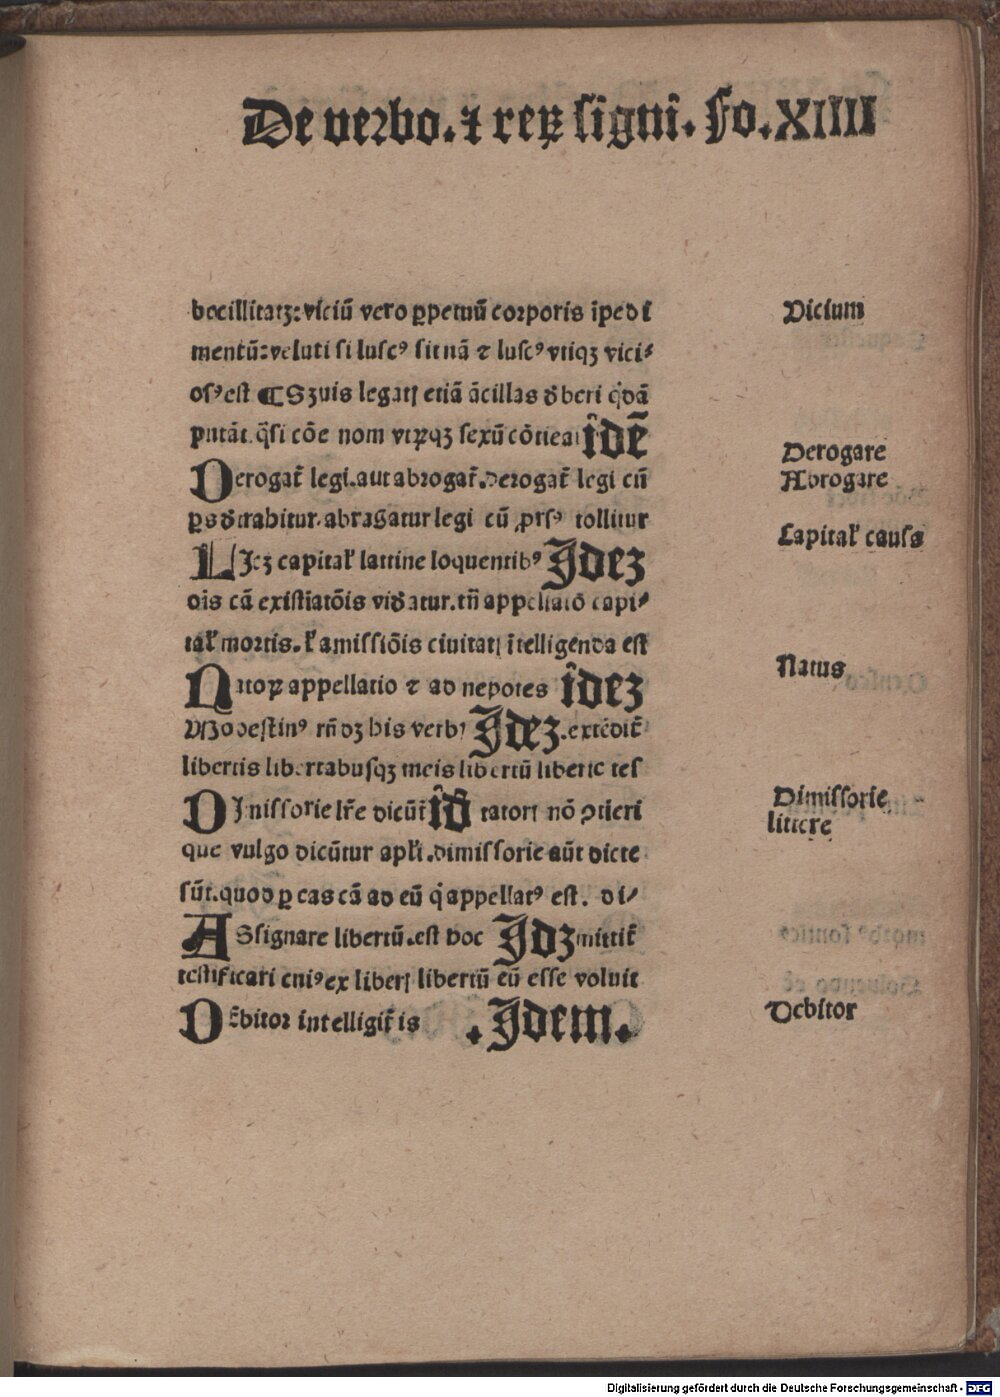 De verbo. ⁊ reꝝ signi̅. Fo. XIIII
becillitatꝫ: viciū vero ꝑpetuū corporis īpedi
mentū: veluti si luscꝰ sit nā ⁊ luscꝰ vtiqꝫ vici⸗
osꝰ est ¶ Sꝫuis legatꝭ etiā ācillas dberi q̇dā
putāt. q̄si cōe nom vtrꝗꝫ sexū cōtieat īdē
Derogat̄ legi. aut abrogat̄. derogat̄ legi cū
ꝑs dtrabitur. abragatur legi cū ꝓrsꝰ tollitur
LIcꝫ capital̄ lattine loquentibꝰ Jdeꝫ
ois cā existiatōis vidatur. tn̄ appellatō capi⸗
tal̄ mortis. l̄ amissiōis ciuitatꝭ ītelligenda est
Natoꝝ appellatio ⁊ ad nepotes īdeꝫ
Modestinꝰ rn̄dꝫ his verbꝭ Jdeꝫ. extēdit̄
libertis libertabusqꝫ meis libertū liberte tes
DImissorie lr̄e dicūt̄ īd tatorꝭ nō ꝯtieri
que vulgo dicūtur apl̄i. dimissorie aūt dicte
sūt. quod ꝑ eas cā ad eū q̇ appellatꝰ est. di⸗
ASsignare libertū. est hoc Jdꝫ mittit̄
testificari eniꝰ ex liberꝭ libertū eū esse voluit
Dēbitor intelligit̄ is . Jdem .
Vicium
Derogare
Abrogare
Capital̄ causa
Natus
Dimissorie
littere
Debitor
Digitalisierung gefördert durch die Deutsche Forschungsgemeinschaft - DFG